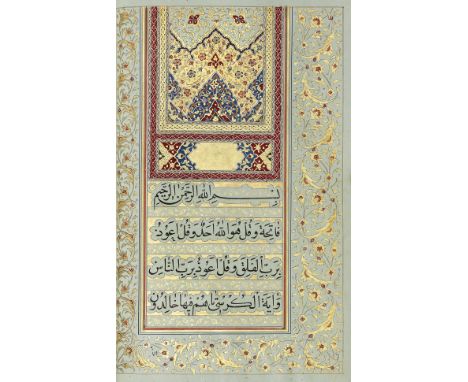 بسم الله الرحمن الرحيم
فاتحة وقل هو الله احد وقل اعوذ
برب الفلق وقل اعوذ برب الناس
واية الكرسي هم فيها خالدون